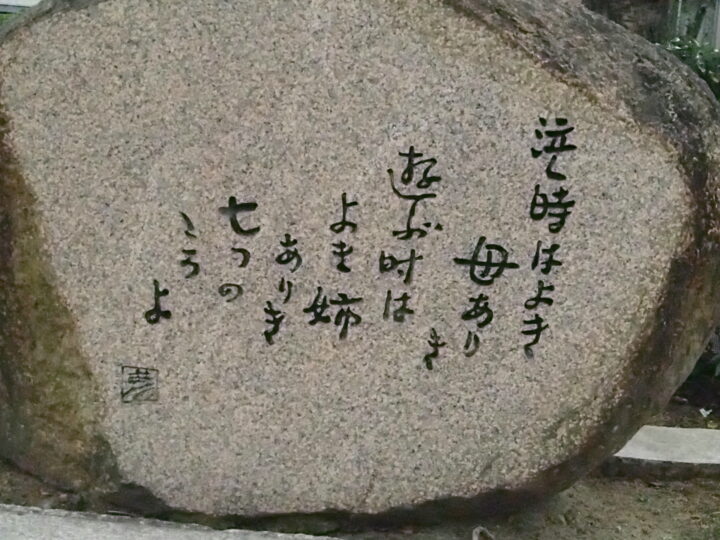 泣く時はよき
母ありき
遊ぶ時は
よき姉
ありき
七つの
ころ
よ